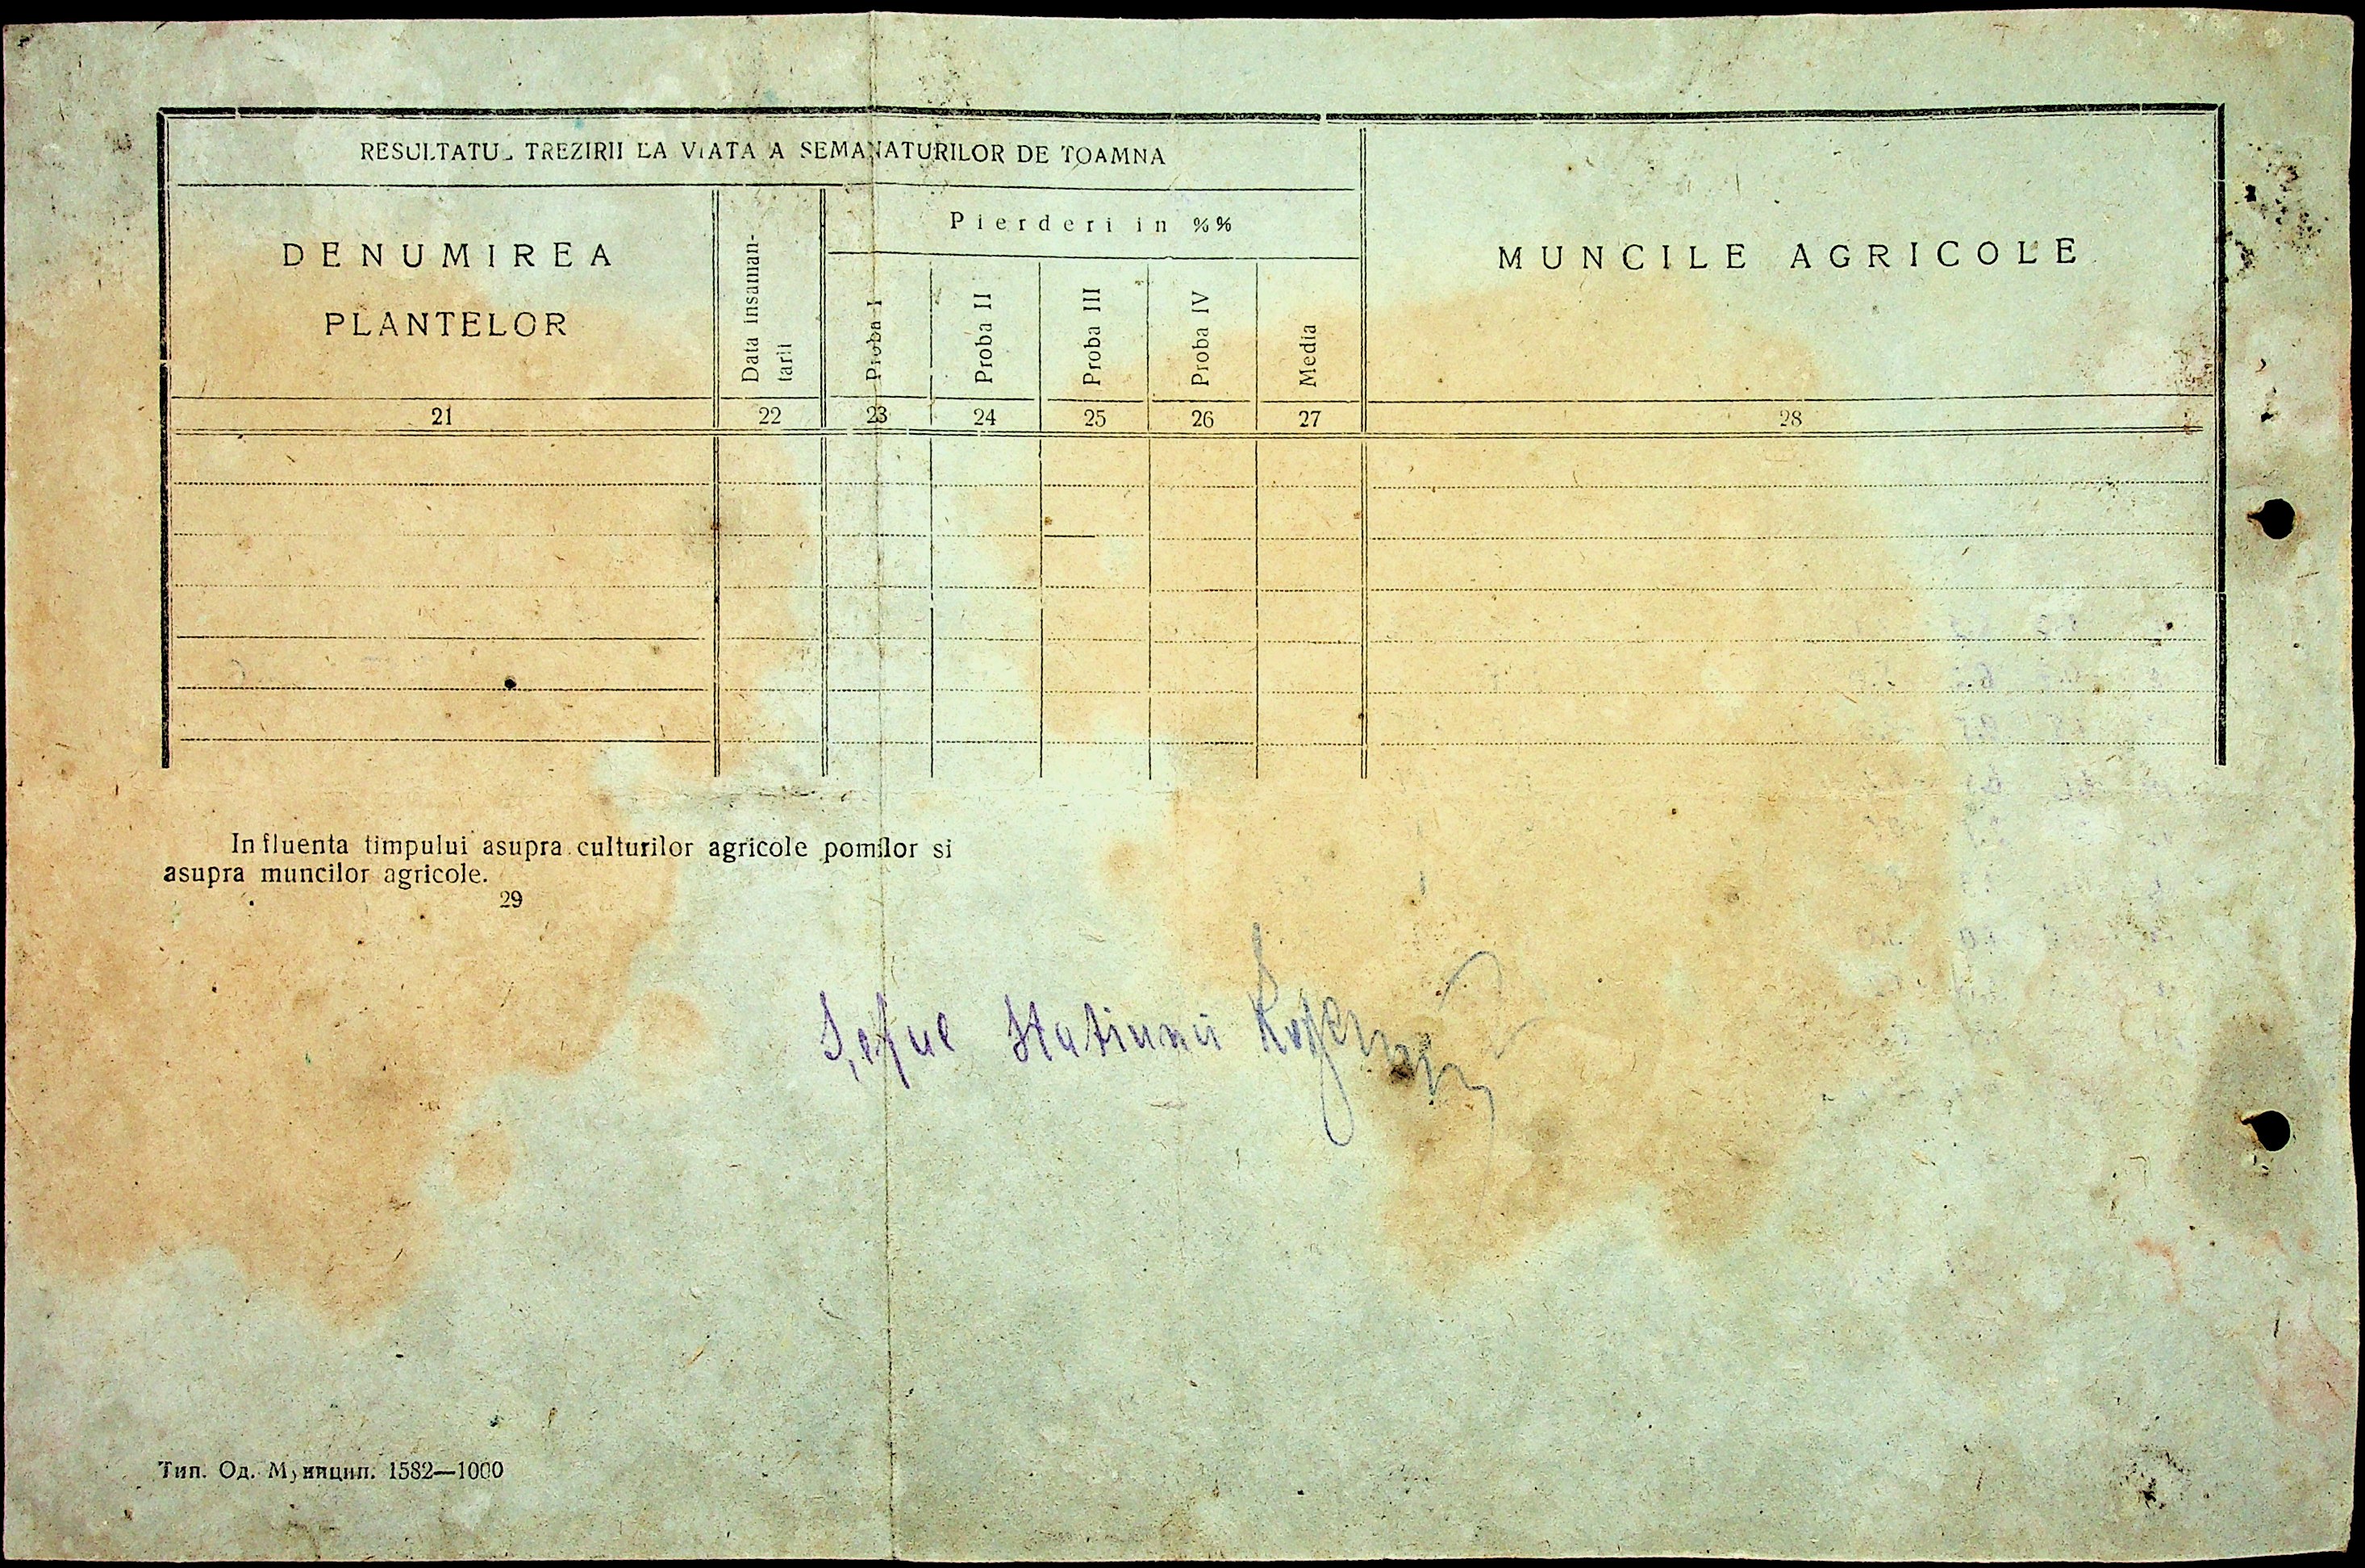 RESULTATUL TREZIRII LA VIATA A SEMANATURILOR DE TOAMNA
DENUMIREA
PLANTELOR
Data insaman-
tarii
Pierderi in %%
Proba I
Proba II
Proba III
Proba IV
Media
MUNCILE AGRICOLE
21 22 23 24 25 26 27 28
Influenta timpului asupra culturilor agricole pomilor si
asupra muncilor agricole.
29
Șeful Statiunii
Тип. Од. Муницип. 1582—1000